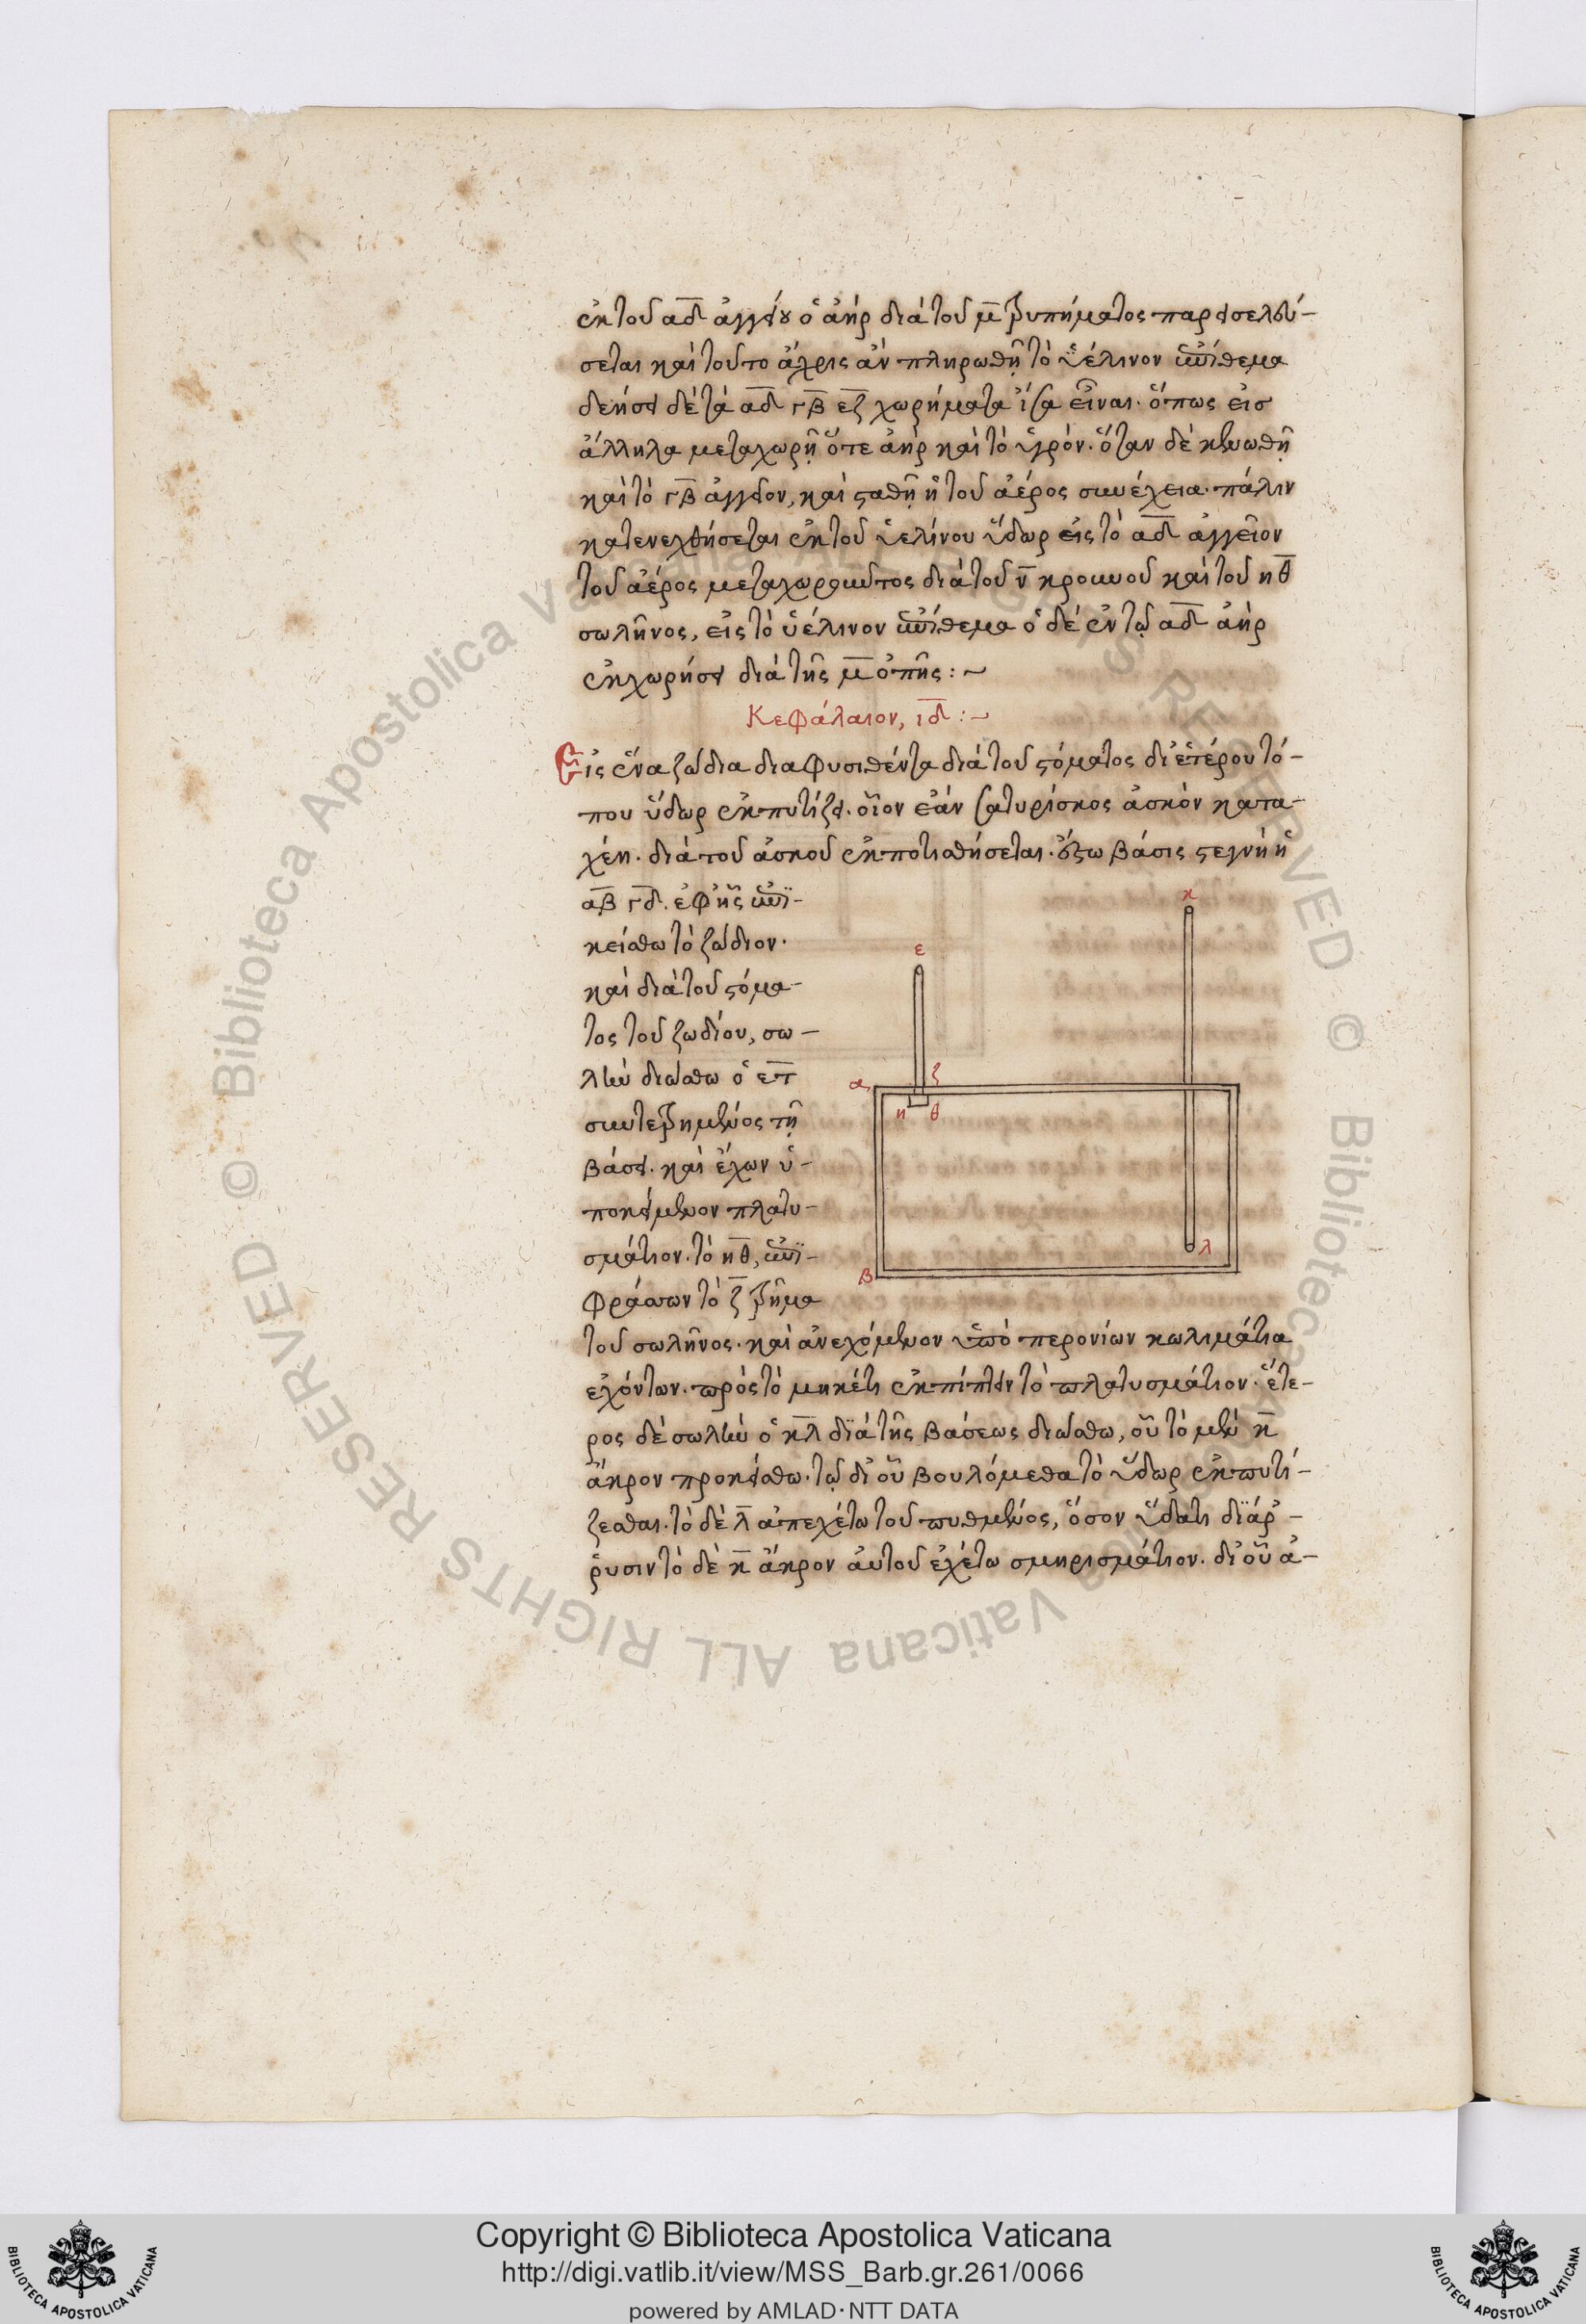 ἐκ τοῦ αδ ἀγγείου ὁ ἀὴρ διὰ τοῦ μ τρυπήματος παρεισελεύ-
σεται καὶ τοῦτο ἄχρις ἂν πληρωθῇ τὸ ὑέλινον ἐπίθεμα
δεήσει δὲ τὰ αδ γβ εζ χωρήματα ἴσα εἶναι. ὅπως εἰσ
ἄλληλα μεταχωρῇ ὅτε ἀὴρ καὶ τὸ ὑγρόν. ὅταν δὲ κενωθῇ
καὶ τὸ γβ ἀγγεῖον, καὶ σταθῇ ἡ τοῦ ἀέρος συνέχεια. πάλιν
κατενεχθήσεται ἐκ τοῦ ὑελίνου ὕδωρ εἰς τὸ αδ ἀγγεῖον
τοῦ ἀέρος μεταχωροῦντος διὰ τοῦ ν κρουνοῦ καὶ τοῦ ηθ
σωλῆνος, εἰς τὸ ὑέλινον ἐπίθεμα ὁ δὲ ἐν τῷ αδ ἀὴρ
ἐκχωρήσει διὰ τῆς μ ὀπῆς :~
Κεφάλαιον, ιδ :~
Εἰς ἕνα ζώδια διαφυσιθέντα διὰ τοῦ στόματος δι' ἑτέρου τό-
που ὕδωρ ἐκπυτίζει. οἷον ἐὰν σατυρίσκος ἀσκὸν κατα-
χέῃ. διὰ τοῦ ἀσκοῦ ἐκποτισθήσεται. ἔστω βάσις στεγνὴ ἡ
αβ γδ. ἐφ' ἧς ἐπι-
κείσθω τὸ ζώδιον.
καὶ διὰ τοῦ στόμα-
τος τοῦ ζωδίου, σω-
λὴν διώσθω ὁ εζ
συντετρημένος τῇ
βάσει. καὶ ἔχων ὑ-
ποκείμενον πλατυ-
σμάτιον. τὸ ηθ, ἐπι-
φράσσων τὸ ζ τρῆμα
τοῦ σωλῆνος. καὶ ἀνεχόμενον ὑπὸ περονίων κωλιμάτια
ἐχόντων. πρὸς τὸ μηκέτι ἐκπίπτειν τὸ πλατυσμάτιον. ἕτε-
ρος δὲ σωλὴν ὁ κλ διὰ τῆς βάσεως διώσθω, οὗ τὸ μὲν κ
ἄκρον προκείσθω. τῷ δι' οὗ βουλόμεθα τὸ ὕδωρ ἐκπυτί-
ζεσθαι. τὸ δὲ λ ἀπεχέτω τοῦ πυθμένος, ὅσον ὕδατι διάρ-
ρυσιν τὸ δὲ κ ἄκρον αὐτοῦ ἐχέτω σμηρισμάτιον. δι' οὗ ἀ-
κ
ε
α ζ
η θ
λ
β
Copyright © Biblioteca Apostolica Vaticana
http://digi.vatlib.it/view/MSS_Barb.gr.261/0066
powered by AMLAD·NTT DATA
BIBLIOTECA APOSTOLICA VATICANA
BIBLIOTECA APOSTOLICA VATICANA
© Biblioteca Apostolica Vaticana ALL RIGHTS RESERVED
© Biblioteca Apostolica Vaticana ALL RIGHTS RESERVED